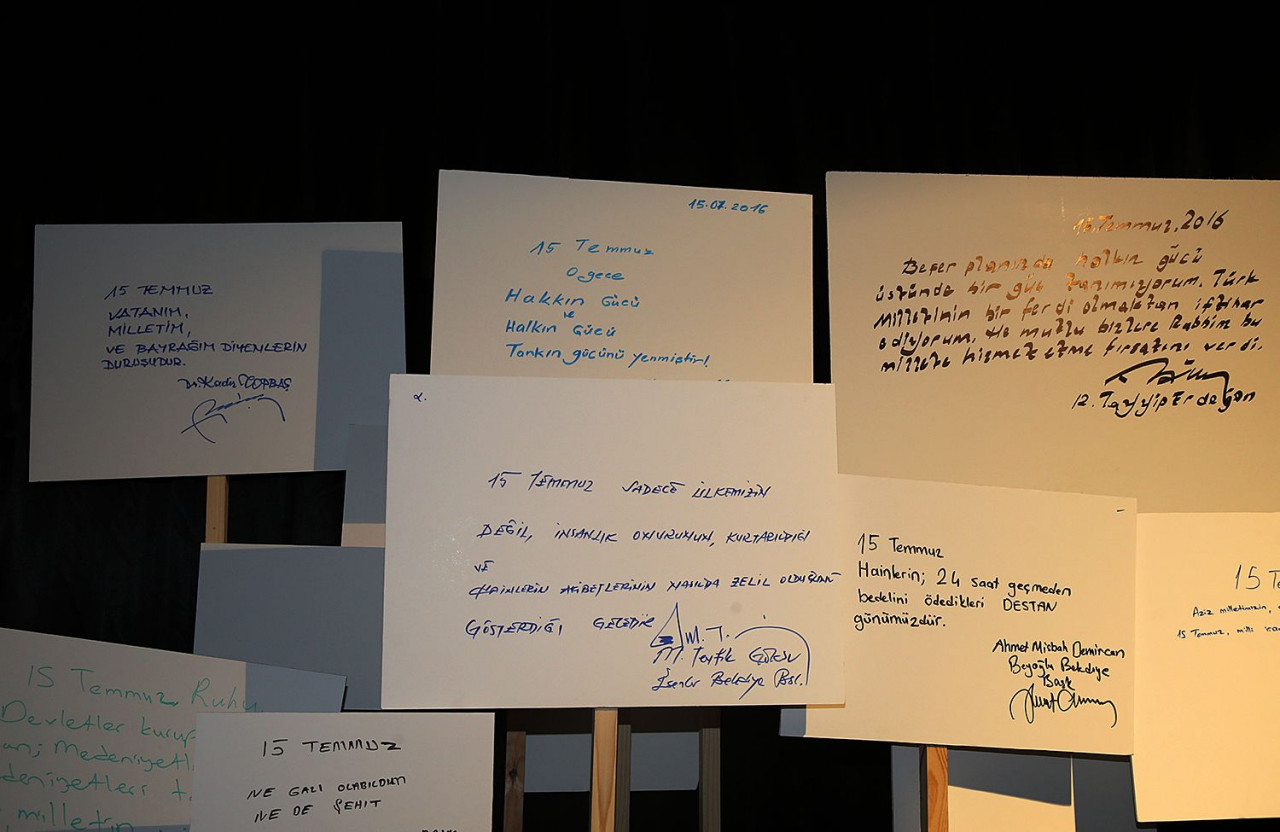 15 TEMMUZ
VATANIM,
MİLLETİM,
VE BAYRAĞIM DİYENLERİN
DURUŞUDUR.
Dr. Kadir TOPBAŞ
15.07.2016
15 Temmuz
O gece
Hakkın Gücü
ve
Halkın Gücü
Tankın gücünü yenmiştir!
15.Temmuz.2016
Beşer planında halkın gücü
üstünde bir güç tanımıyorum. Türk
Milletinin bir ferdi olmaktan iftihar
ediyorum. Ne mutlu bizlere Rabbim bu
millete hizmet etme fırsatını verdi.
R. Tayyip Erdoğan
15 TEMMUZ SADECE ÜLKEMİZİN
DEĞİL, İNSANLIK ONURUNUN, KURTARILDIĞI
VE
HAİNLERİN AKİBETLERİNİN NASILDA ZELİL OLDUĞUNU
GÖSTERDİĞİ GECEDİR
M.T.
M. Tevfik Göksu
Esenler Belediye Bşk.
15 Temmuz
Hainlerin; 24 saat geçmeden
bedelini ödedikleri DESTAN
günümüzdür.
Ahmet Misbah Demircan
Beyoğlu Belediye
Başk
15 Te
Aziz milletimizin,
15 Temmuz, milli
15 Temmuz Ruhu
Devletler kurup
an; Medeniyetl
deniyetleri t
milletin
15 TEMMUZ
NE GAZİ OLABİLDİM
NE DE ŞEHİT